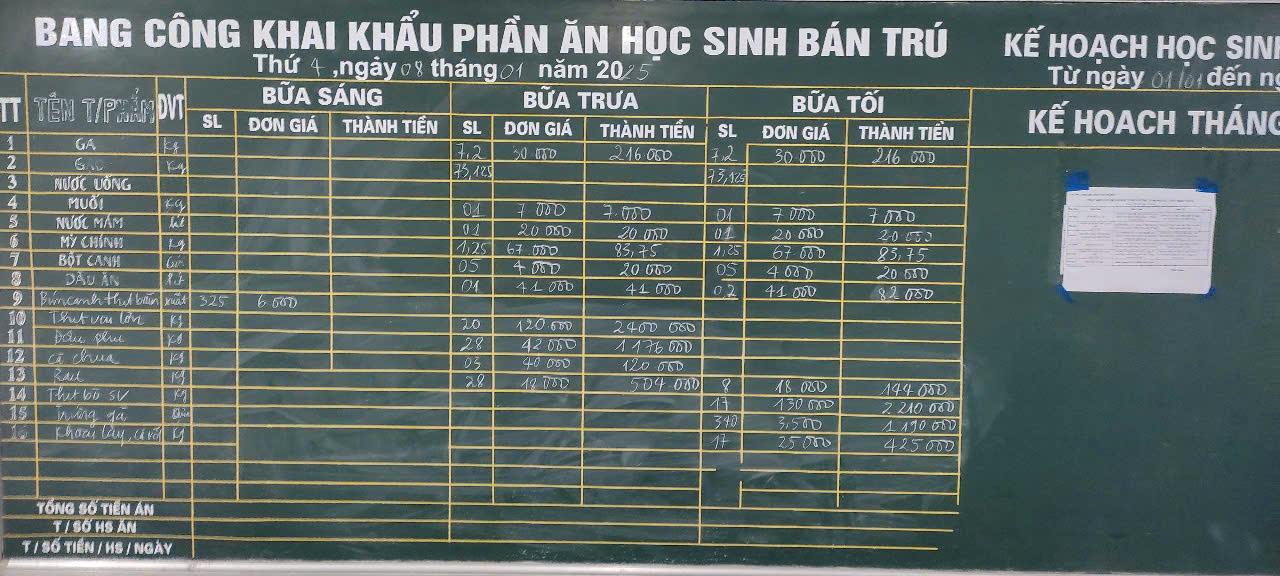 BANG CÔNG KHAI KHẨU PHẦN ĂN HỌC SINH BÁN TRÚ
Thứ 4, ngày 08 tháng 01 năm 2025
KẾ HOẠCH HỌC SIN
Từ ngày 01/01 đến
KẾ HOACH THÁNG
TT TÊN T/PHẨM ĐVT BỮA SÁNG BỮA TRƯA BỮA TỐI
SL ĐƠN GIÁ THÀNH TIỀN SL ĐƠN GIÁ THÀNH TIỀN SL ĐƠN GIÁ THÀNH TIỀN
1 GA Kg 7,2 30 000 216 000 7,2 30 000 216 000
2 Kg 73,125 73,125
3 NƯỚC UỐNG
4 MUỐI Kg 01 7 000 7.000 01 7 000 7 000
5 NƯỚC MẮM lít 01 20 000 20 000 01 20 000 20 000
6 MỲ CHÍNH Kg 1,25 67 000 83,75 1,25 67 000 83,75
7 BỘT CANH 05 4 000 20 000 05 4 000 20 000
8 DẦU ĂN lít 01 41 000 41 000 02 41 000 82 000
9 Bún canh thịt băm xuất 325 6 000
10 Thịt vai lợn Kg 20 120 000 2400 000
11 Đậu phụ Kg 28 42 000 1 176 000
12 cà chua Kg 03 40 000 120 000
13 Rau Kg 28 18 000 504 000 8 18 000 144 000
14 Thịt bò SV Kg 17 130 000 2 210 000
15 Trứng gà 340 3,500 1 190 000
16 Khoai tây, cà rốt Kg 17 25 000 425 000
TỔNG SỐ TIỀN ĂN
T / SỐ HS ĂN
T / SỐ TIỀN / HS / NGÀY